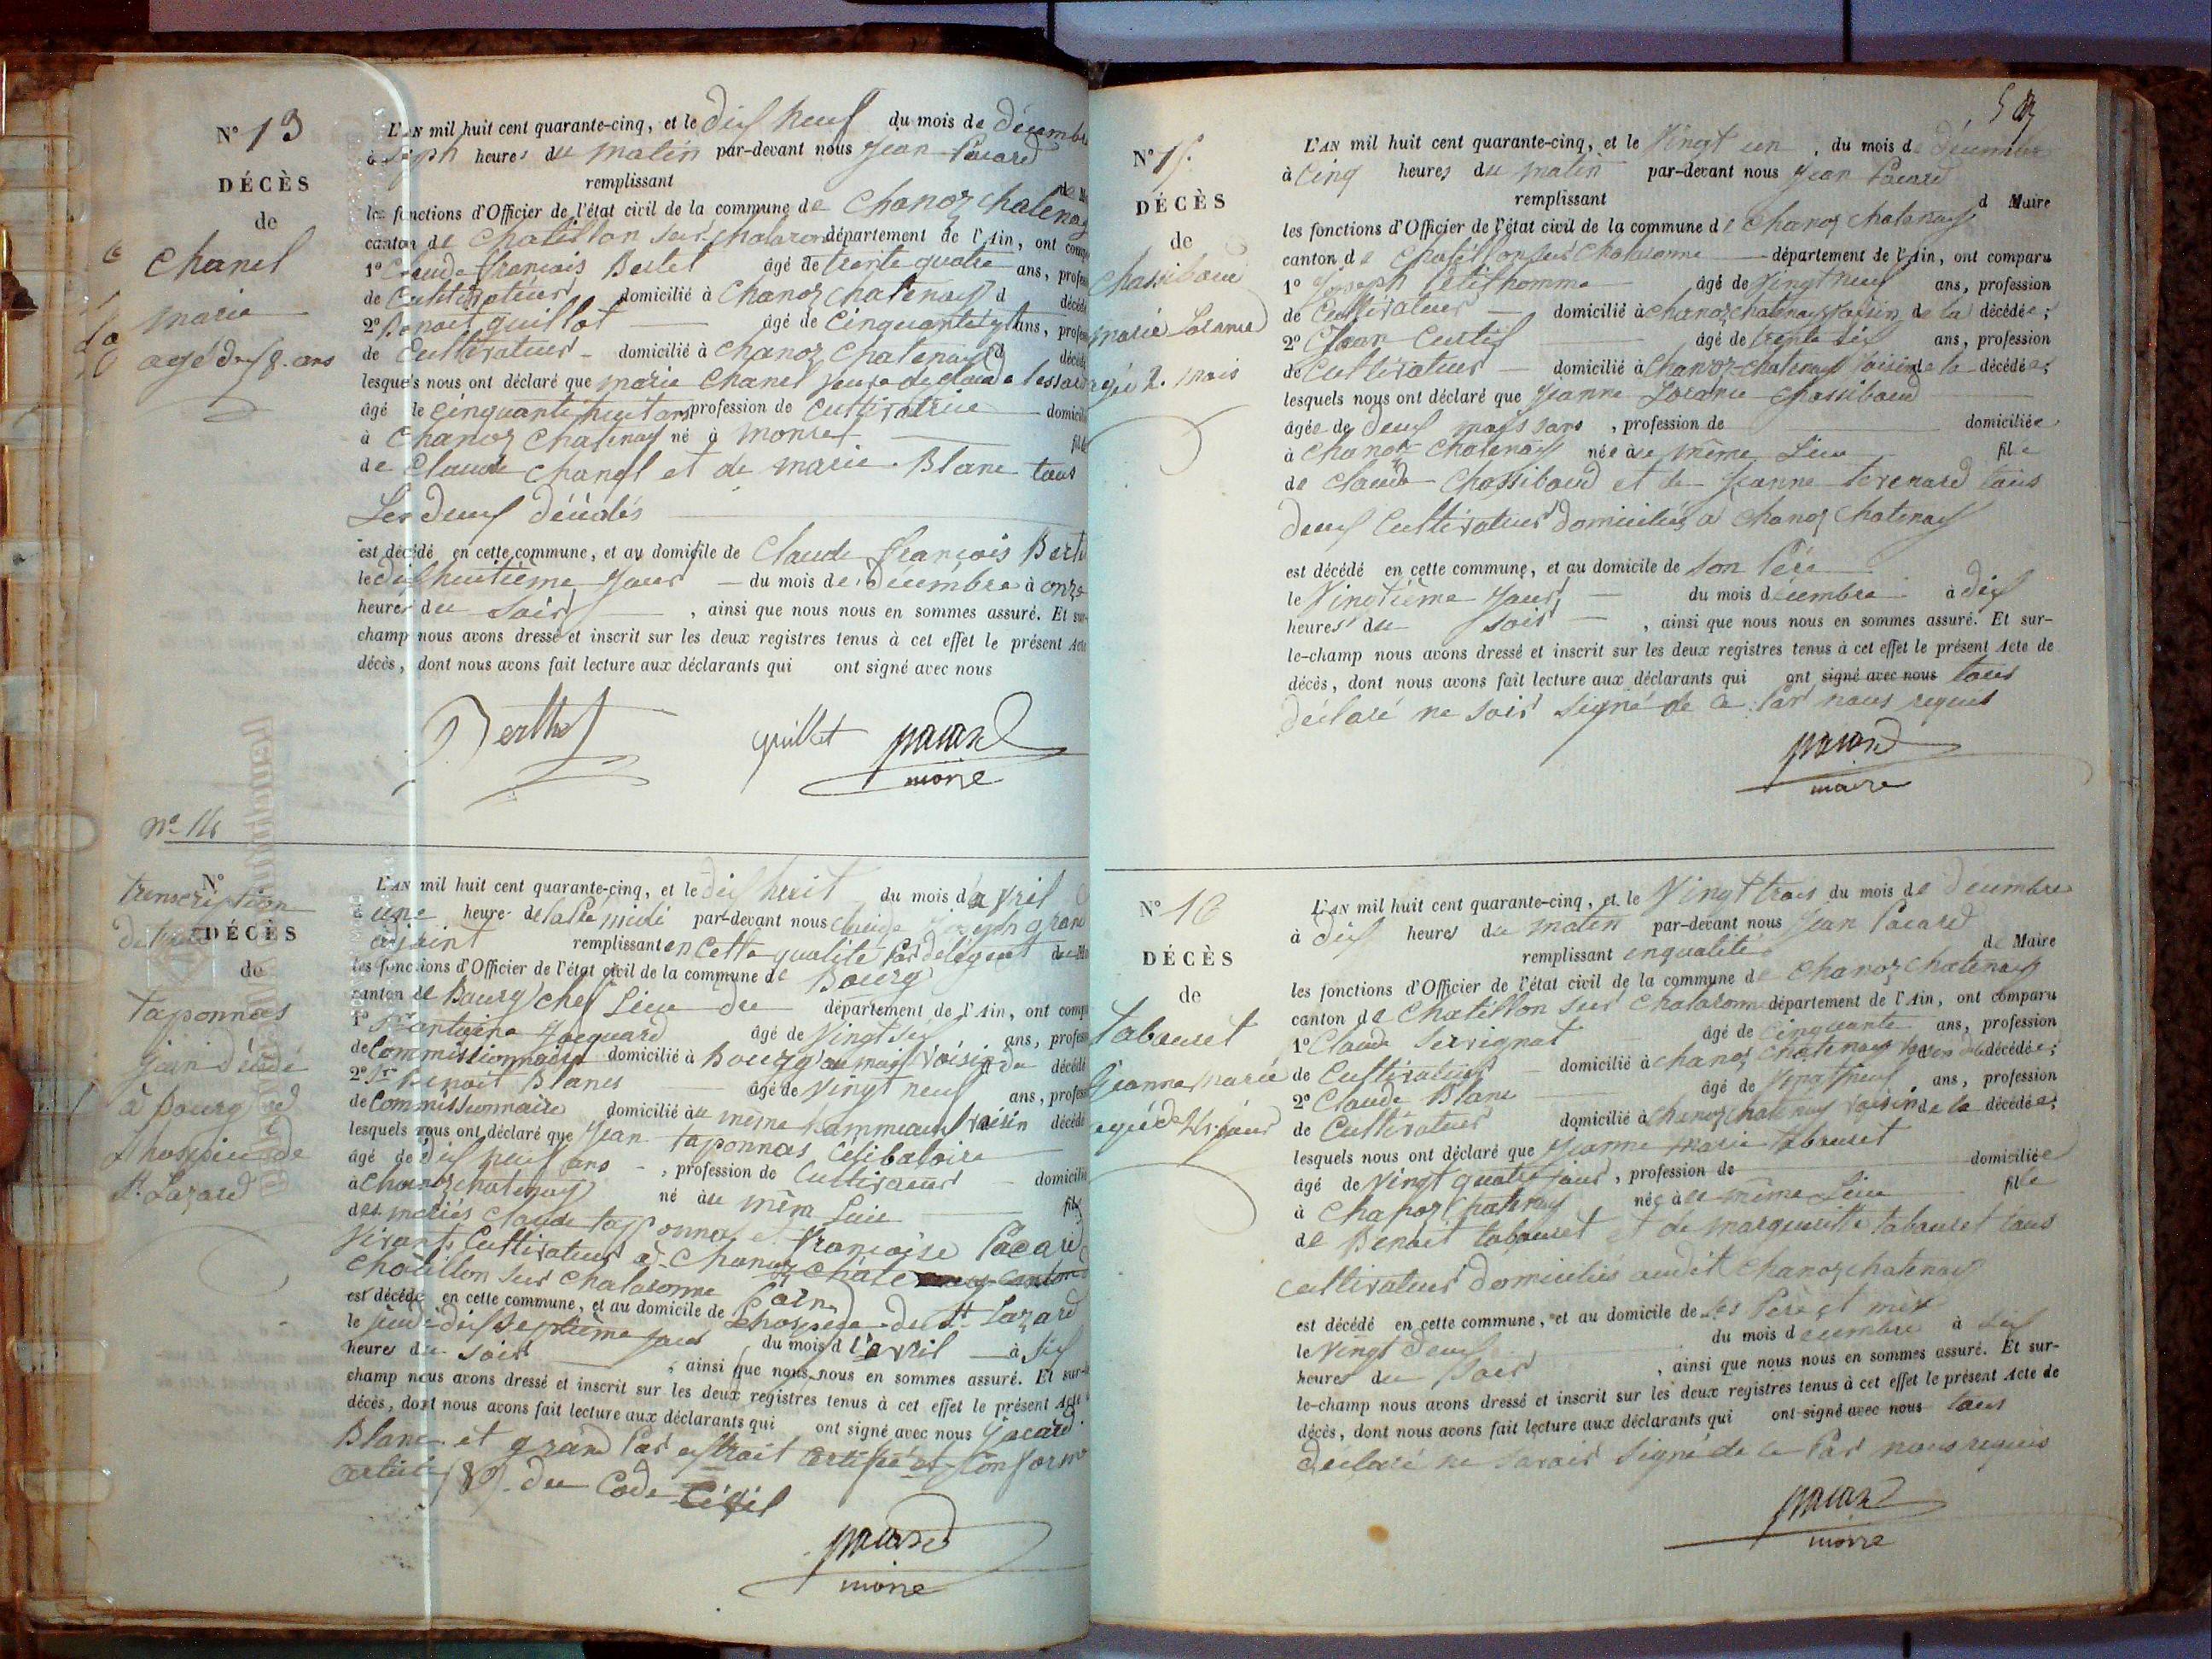 N° 13
DÉCÈS
de
Chanel
marie
agé de 58. ans
L'AN mil huit cent quarante-cinq, et le dix neuf du mois de décembre
à sept heures du matin par-devant nous Jean Pacard
remplissant
les fonctions d'Officier de l'état civil de la commune de Chanoz chatenay
canton de Chatillon sur chalaronne département de l'Ain, ont
1° Claude françois Bertet âgé de trente quatre ans,
de Cultivateur domicilié à Chanoz chatenay d
2° Benoit guillot âgé de Cinquante ans,
de Cultivateur domicilié à Chanoz Chatenay d
lesquels nous ont déclaré que marie Chanel veuve de claude
âgé de cinquante huit ans profession de Cultivatrice
à Chanoz Chatenay né à monset
de Claude Chanel et de marie Blanc tous
Les deux décédés
est décédé en cette commune, et au domicile de Claude françois
le dix huitième jour du mois de décembre à onze
heures du soir, ainsi que nous nous en sommes assuré. Et sur-
champ nous avons dressé et inscrit sur les deux registres tenus à cet effet le présent Acte
décès, dont nous avons fait lecture aux déclarants qui ont signé avec nous
Berthet guillot pacard
maire
n° 14
N°
transcription
DÉCÈS
de
taponnas
jean décédé
à bourg
L'AN mil huit cent quarante-cinq, et le dix huit du mois d'avril
à une heure par-devant nous Claude Joseph grand
adjoint remplissant en cette qualité Par délégant
les fonctions d'Officier de l'état civil de la commune de Bourg
canton de Bourg chef Lieu du département de l'Ain, ont
1° antoine Jacquard âgé de Vingt six ans,
de Commissionnaire domicilié à Bourg voisin du
2° Benoit Blanc âgé de Vingt neuf ans,
de Commissionnaire domicilié au même voisin
lesquels nous ont déclaré que Jean taponnas Célibataire
âgé de dix neuf ans, profession de Cultivateur
à chanoz chatenay né au même Lieu
des mariés claude tapponnas et françoise Pacard
Vivant Cultivateur à Chanoz
chatillon sur chalaronne
est décédé en cette commune, et au domicile de L'hospice de St Lazard
le jeudi dix septième jour du mois d'avril à six
heures du soir, ainsi que nous nous en sommes assuré. Et sur-
champ nous avons dressé et inscrit sur les deux registres tenus à cet effet le présent Acte
décès, dont nous avons fait lecture aux déclarants qui ont signé avec nous
Blanc et grand Par extrait certifié et Conforme
du Code Civil
pacard
maire
N° 15.
DÉCÈS
de
Chassiboud
marie
agée 2. mois
L'AN mil huit cent quarante-cinq, et le Vingt un, du mois de décembre
à Cinq heures du matin par-devant nous Jean Pacard
remplissant d Maire
les fonctions d'Officier de l'état civil de la commune de Chanoz chatenay
canton de Chatillon sur Chalaronne département de l'Ain, ont comparu
1° Joseph Petithomme âgé de Vingt neuf ans, profession
de Cultivateur domicilié à chanoz chatenay voisin de la décédée;
2° Jean âgé de trente six ans, profession
de Cultivateur domicilié à Chanoz chatenay voisin de la décédée;
lesquels nous ont déclaré que Jeanne Chassiboud
âgée de deux mois, profession de domiciliée
à Chanoz chatenay née au même Lieu fille
de Claude Chassiboud et de Jeanne tous
deux Cultivateur domiciliés à Chanoz Chatenay
est décédé en cette commune, et au domicile de son Père
le Vingtième jour, du mois décembre à dix
heures du soir, ainsi que nous nous en sommes assuré. Et sur-
le-champ nous avons dressé et inscrit sur les deux registres tenus à cet effet le présent Acte de
décès, dont nous avons fait lecture aux déclarants qui ont signé avec nous tous
déclaré ne signé de ce Par nous requis
pacard
maire
N° 16
DÉCÈS
de
tabouret
Jeanne marie
L'AN mil huit cent quarante-cinq, et le Vingt trois du mois de décembre
à dix heures du matin par-devant nous Jean Pacard
remplissant en qualité de Maire
les fonctions d'Officier de l'état civil de la commune de Chanoz chatenay
canton de Chatillon sur Chalaronne département de l'Ain, ont comparu
1° Claude Servignat âgé de cinquante ans, profession
de Cultivateur domicilié à chanoz chatenay voisin de la décédée;
2° Claude Blanc âgé de Vingt neuf ans, profession
de Cultivateur domicilié à chanoz chatenay voisin de la décédée;
lesquels nous ont déclaré que Jeanne marie tabouret
âgé de Vingt quatre jours, profession de domiciliée
à Chanoz Chatenay née au même Lieu fille
de Benoit tabouret et de margueritte tabouret tous
cultivateur domiciliés audit Chanoz chatenay
est décédé en cette commune, et au domicile de ses Père et mère
le Vingt deux du mois décembre à six
heures du soir, ainsi que nous nous en sommes assuré. Et sur-
le-champ nous avons dressé et inscrit sur les deux registres tenus à cet effet le présent Acte de
décès, dont nous avons fait lecture aux déclarants qui ont signé avec nous tous
déclaré ne savoir signé de ce Par nous requis
pacard
maire